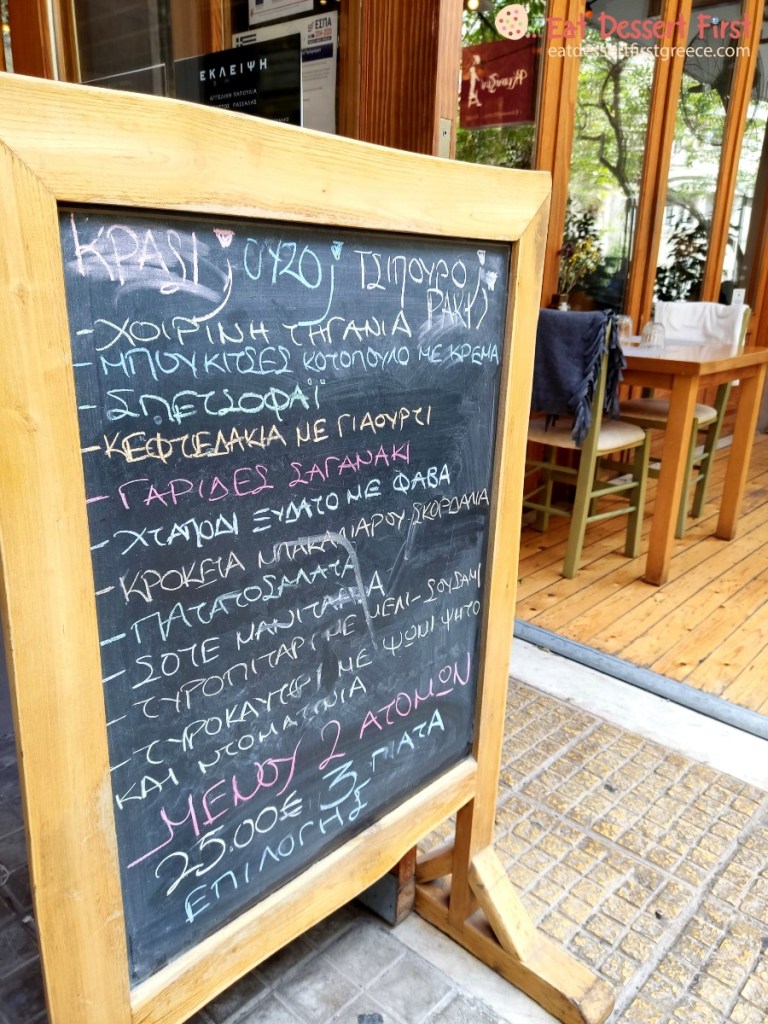 Eat Dessert First
eatdessertfirstgreece.com
ΕΚΛΕΙΨΗ
ΕΣΠΑ
ΚΡΑΣΙ ΟΥΖΟ ΤΣΙΠΟΥΡΟ
ΡΑΚΗ
-ΧΟΙΡΙΝΗ ΤΗΓΑΝΙΑ
-ΜΠΟΥΚΙΤΣΕΣ ΚΟΤΟΠΟΥΛΟ ΜΕ ΚΡΕΜΑ
-ΣΠΕΤΣΟΦΑΪ
-ΚΕΦΤΕΔΑΚΙΑ ΜΕ ΓΙΑΟΥΡΤΙ
-ΓΑΡΙΔΕΣ ΣΑΓΑΝΑΚΙ
-ΧΤΑΠΟΔΙ ΞΥΔΑΤΟ ΜΕ ΦΑΒΑ
-ΚΡΟΚΕΤΑ ΜΠΑΚΑΛΙΑΡΟΥ-ΣΚΟΡΔΑΛΙΑ
-ΠΑΤΑΤΟΣΑΛΑΤΑ
-ΣΟΤΕ ΜΑΝΙΤΑΡΙΑ
-ΤΥΡΟΠΙΤΑΡΙ ΜΕ ΜΕΛΙ-ΣΟΥΣΑΜΙ
-ΤΥΡΟΚΑΥΤΕΡΙ ΜΕ ΨΩΜΙ ΨΗΤΟ
ΚΑΙ ΝΤΟΜΑΤΙΝΙΑ
-ΜΕΝΟΥ 2 ΑΤΟΜΩΝ
25.00€ 3 ΠΙΑΤΑ
ΕΠΙΛΟΓΗΣ